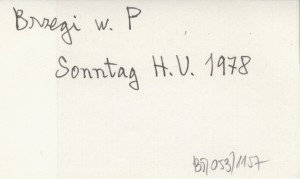 Brzegi w. P
Sonntag H.V. 1978
BP/053/1157